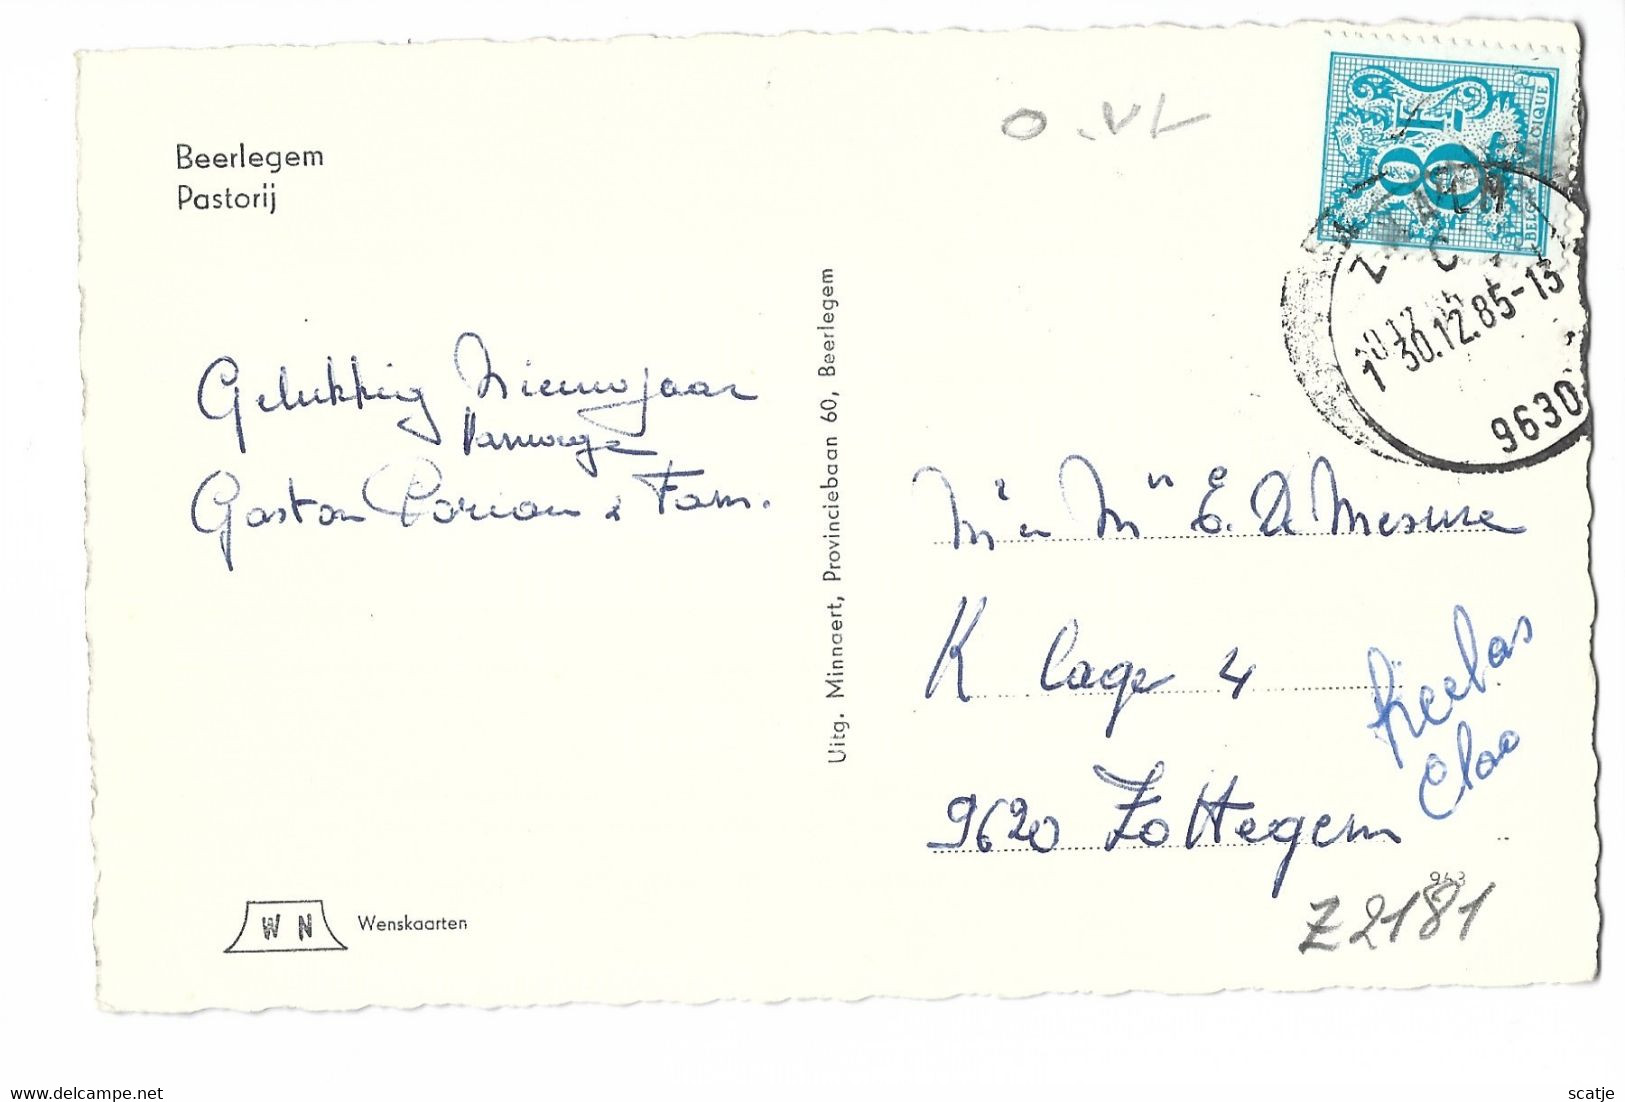 Beerlegem
Pastorij
O.VL
8F
BELGIQUE
30.12.85-13
9630
Gelukkig Nieuwjaar
vanwege
Gaston & Fam.
Uitg. Minnaert, Provinciebaan 60, Beerlegem
Mr en Mevr E. De Mesure
K lage 4
9620 Zottegem
943
Z2181
W N Wenskaarten
www.delcampe.net
scatje